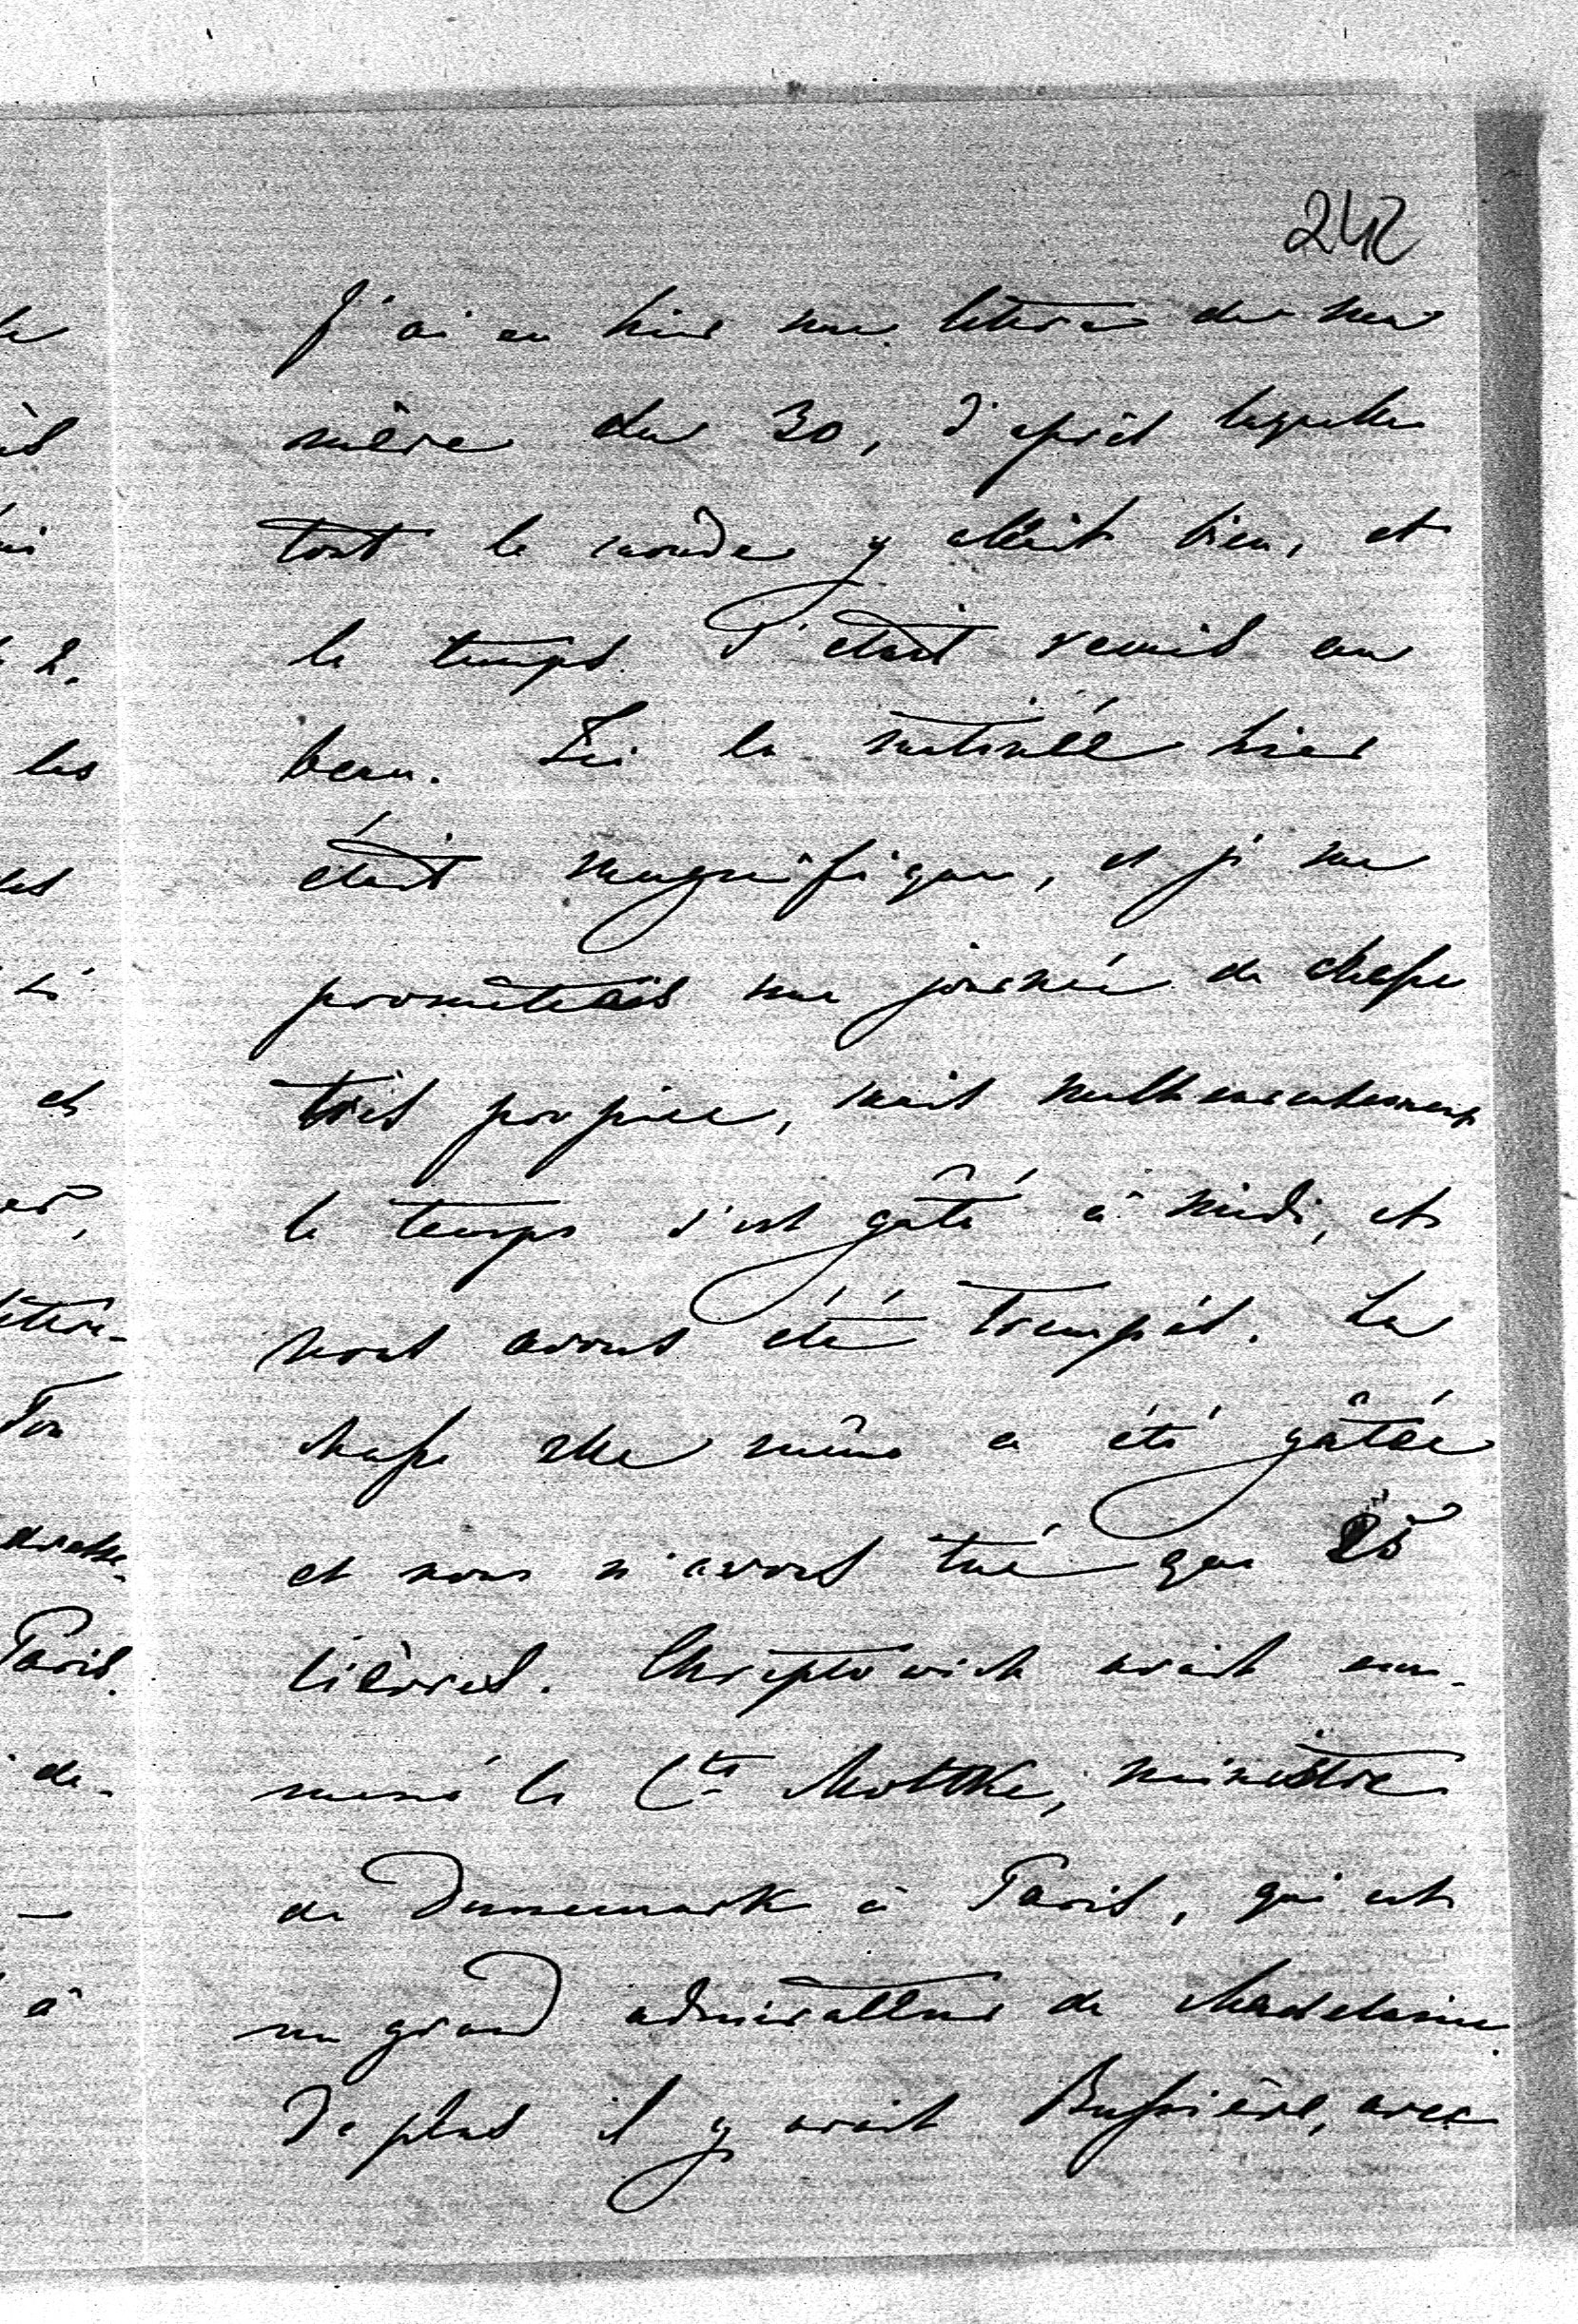 242
J'ai eu hier une lettre de ma
mère du 30, d'après laquelle
tout le monde y allait bien, et
le temps s'était remis au
beau. Ici la matinée hier
était magnifique, et je me
promettais une journée de chasse
très propice, mais malheureusement
le temps s'est gâté à midi, et
nous avons été trempés. La
chasse elle même a été gâtée
et nous n'avons tué que 25
lièvres. Chreptowich avait em-
mené le Cte Moltke, ministre
de Dannemark à Paris, qui est
un grand admirateur de Madelaine.
De plus il y avait Bussière, avec